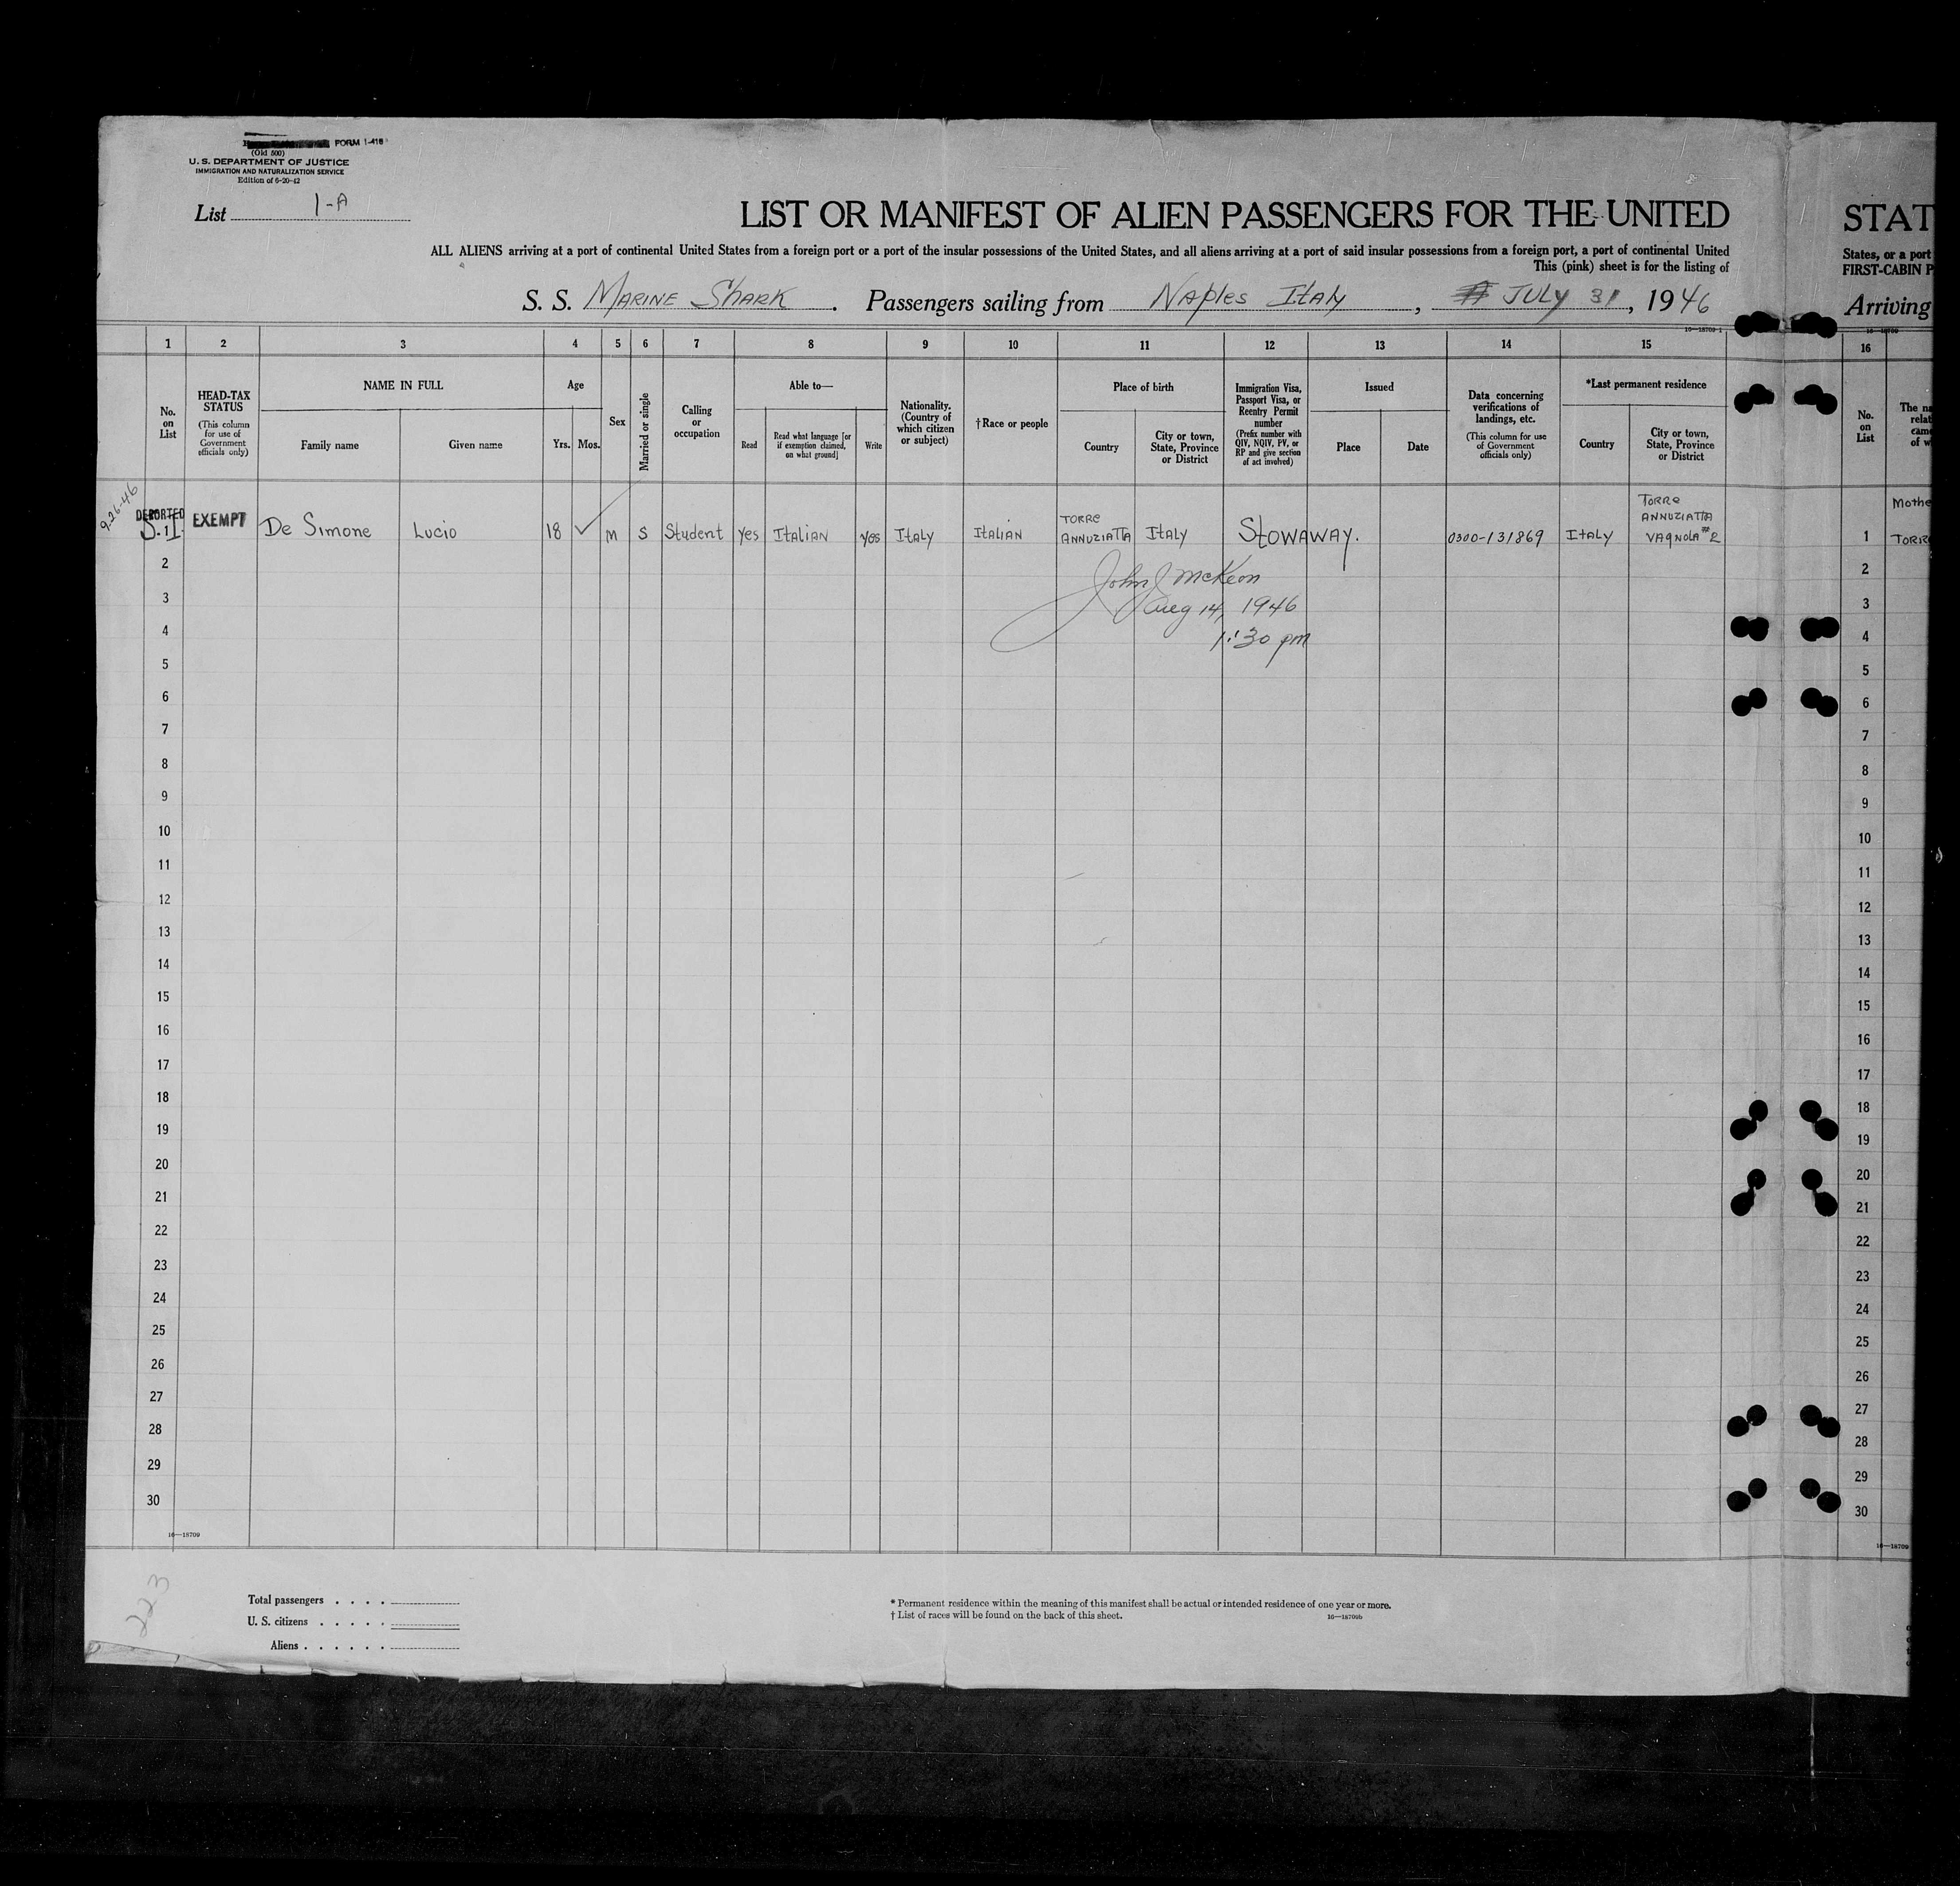 FORM I-416
(Old 500)
U. S. DEPARTMENT OF JUSTICE
IMMIGRATION AND NATURALIZATION SERVICE
Edition of 6-20-42
List 1-A
LIST OR MANIFEST OF ALIEN PASSENGERS FOR THE UNITED
STAT
ALL ALIENS arriving at a port of continental United States from a foreign port or a port of the insular possessions of the United States, and all aliens arriving at a port of said insular possessions from a foreign port, a port of continental United
States, or a port
This (pink) sheet is for the listing of
FIRST-CABIN P
S. S. MARINE SHARK. Passengers sailing from Naples Italy, JULY 31, 1946
Arriving
16—18709-1
16—18709
1 2 3 4 5 6 7 8 9 10 11 12 13 14 15 16
No. on List
HEAD-TAX STATUS
(This column for use of Government officials only)
NAME IN FULL
Family name
Given name
Age
Yrs. Mos.
Sex
Married or single
Calling or occupation
Able to—
Read
Read what language [or if exemption claimed, on what ground]
Write
Nationality. (Country of which citizen or subject)
†Race or people
Place of birth
Country
City or town, State, Province or District
Immigration Visa, Passport Visa, or Reentry Permit number
(Prefix number with QIV, NQIV, PV, or RP and give section of act involved)
Issued
Place
Date
Data concerning verifications of landings, etc.
(This column for use of Government officials only)
*Last permanent residence
Country
City or town, State, Province or District
No. on List
The na
relat
came
of w
9-26-46
DEPORTED
1 EXEMPT De Simone Lucio 18 ✓ M S Student Yes ITALIAN yes ITALY ITALIAN TORRE ANNUZIATTA ITALY STOWAWAY. 0300-131869 ITALY TORRE ANNUZIATTA VAGNOLA #2
Mothe
1 TORRE
John J McKeon
Aug 14, 1946
1:30 pm
2 2
3 3
4 4
5 5
6 6
7 7
8 8
9 9
10 10
11 11
12 12
13 13
14 14
15 15
16 16
17 17
18 18
19 19
20 20
21 21
22 22
23 23
24 24
25 25
26 26
27 27
28 28
29 29
30 30
16—18709
16—18709
223
Total passengers . . . .
U. S. citizens . . . . .
Aliens . . . . . .
* Permanent residence within the meaning of this manifest shall be actual or intended residence of one year or more.
† List of races will be found on the back of this sheet.
16—18709b